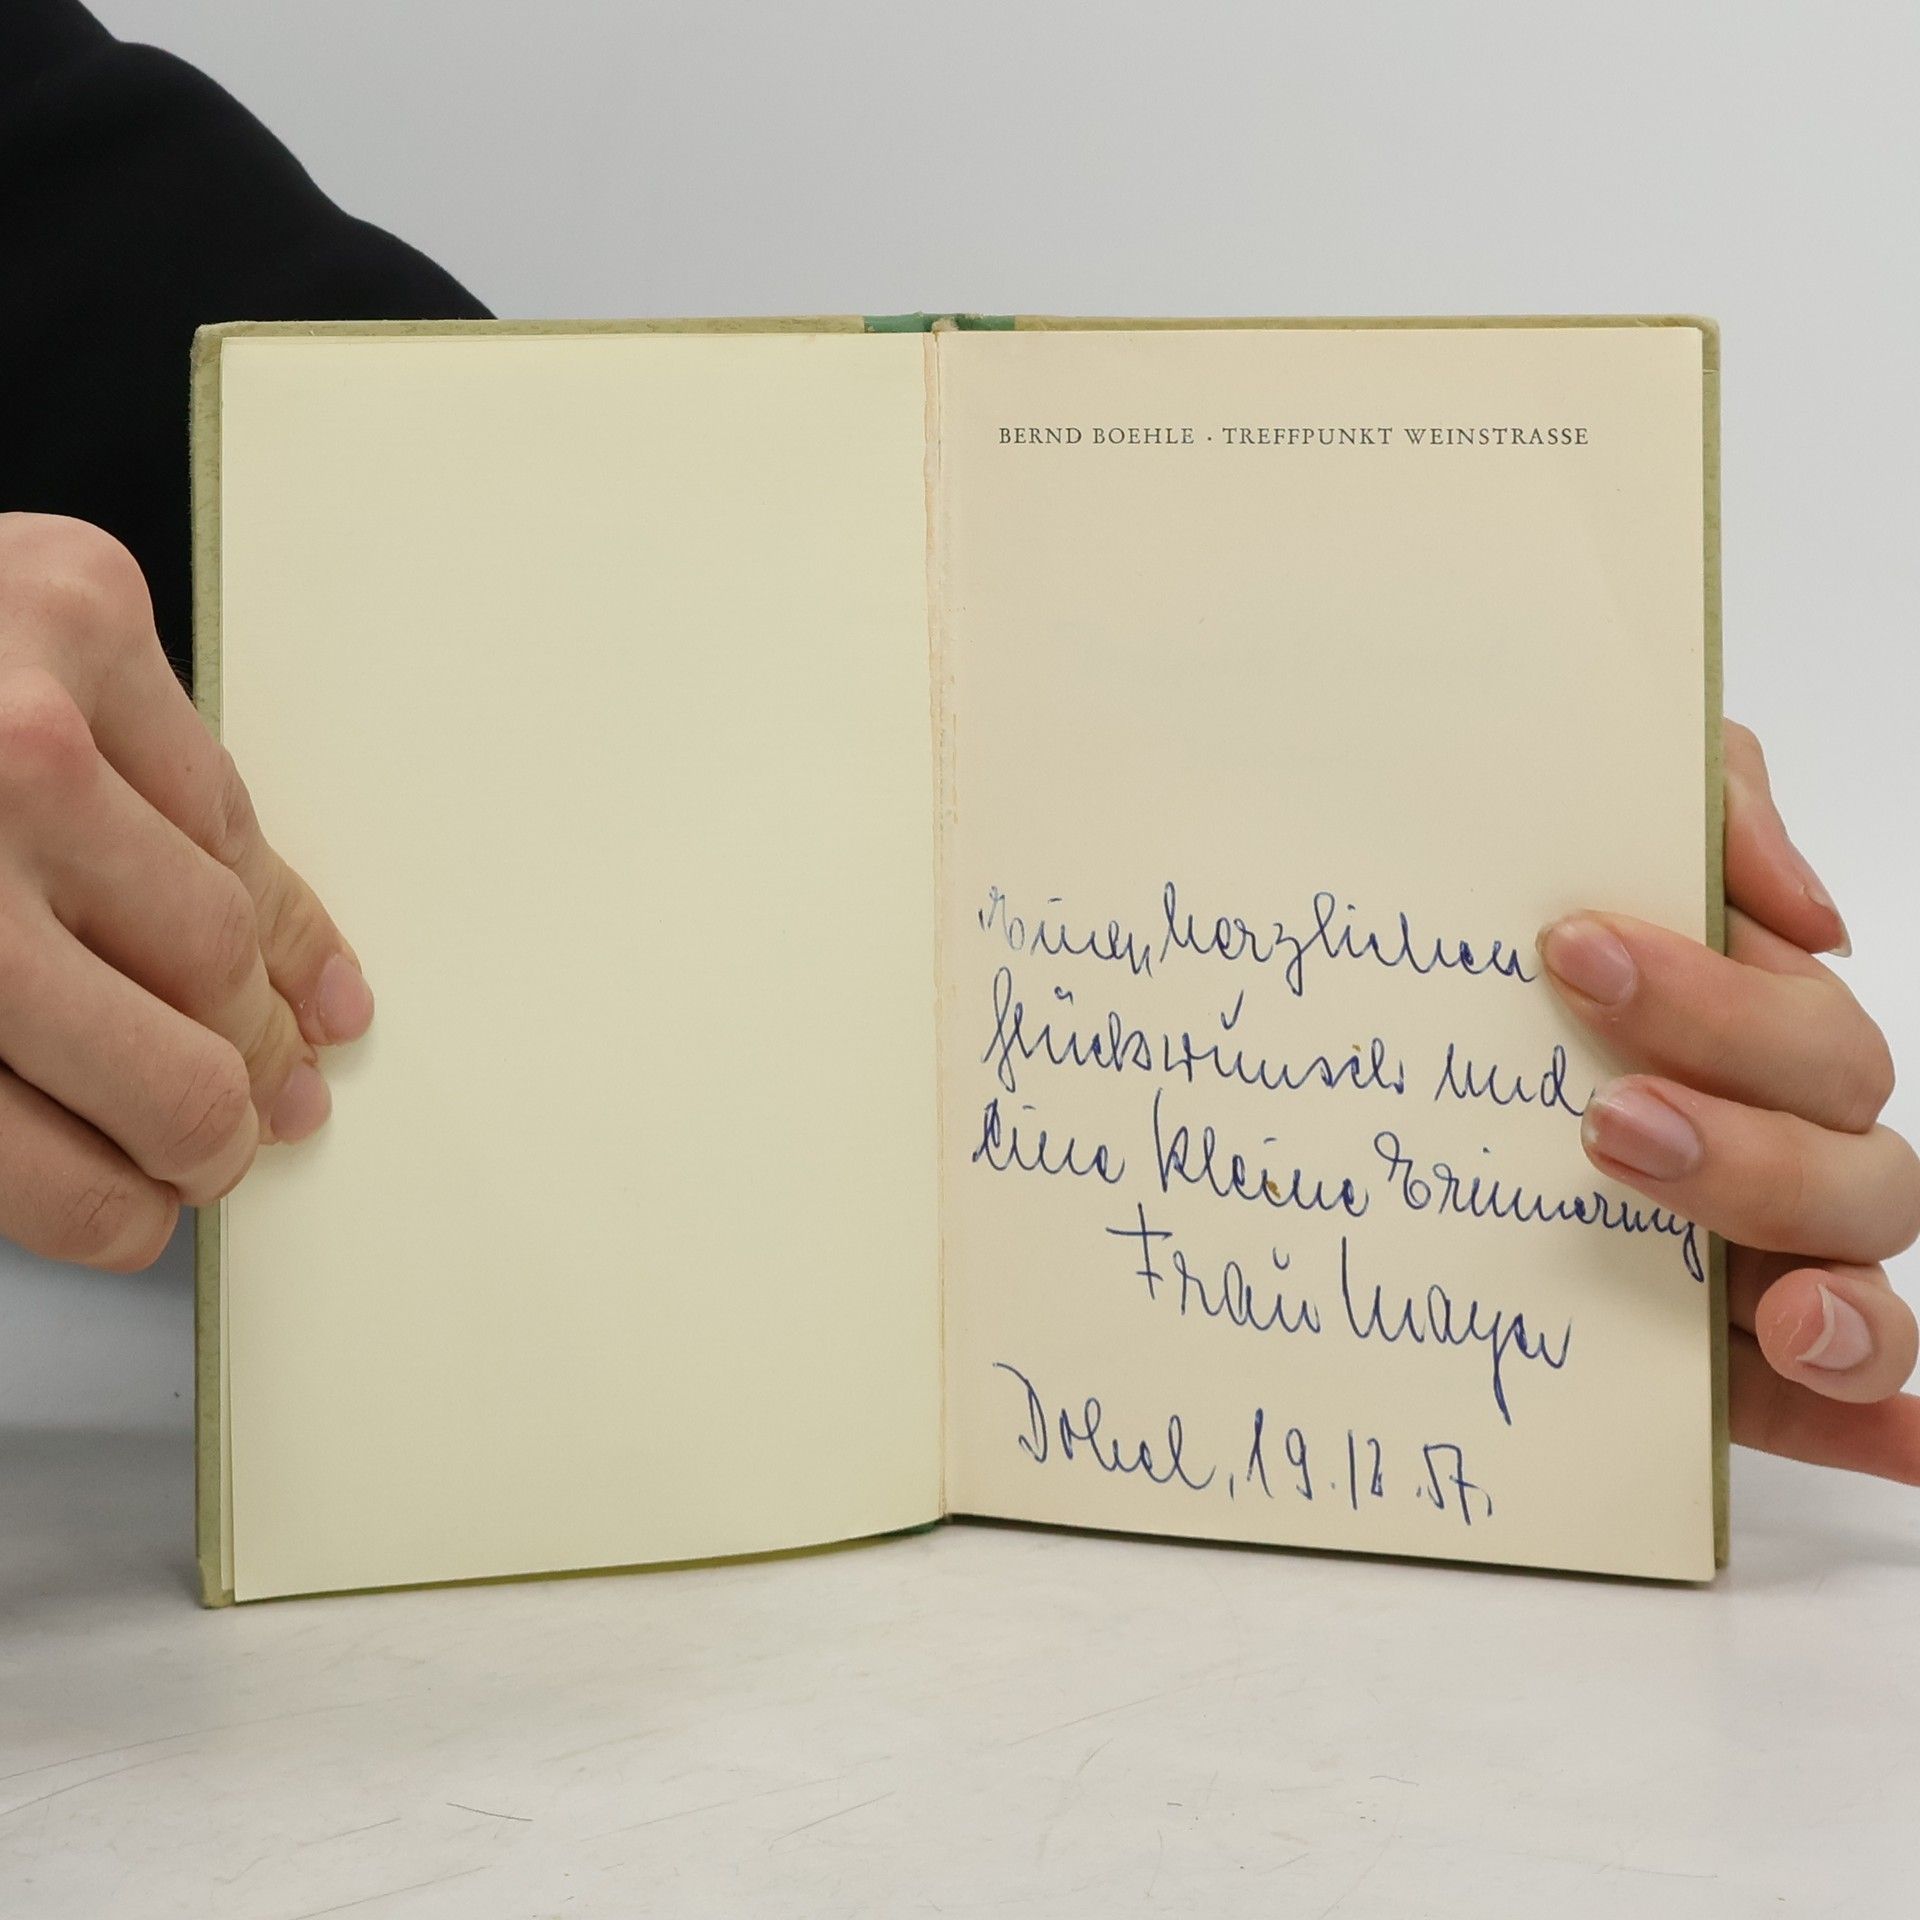 BERND BOEHLE · TREFFPUNKT WEINSTRASSE
Einen herzlichen
Glückwunsch und
eine kleine Erinnerung
Frau Mayer
Dobel, 19.12.57.